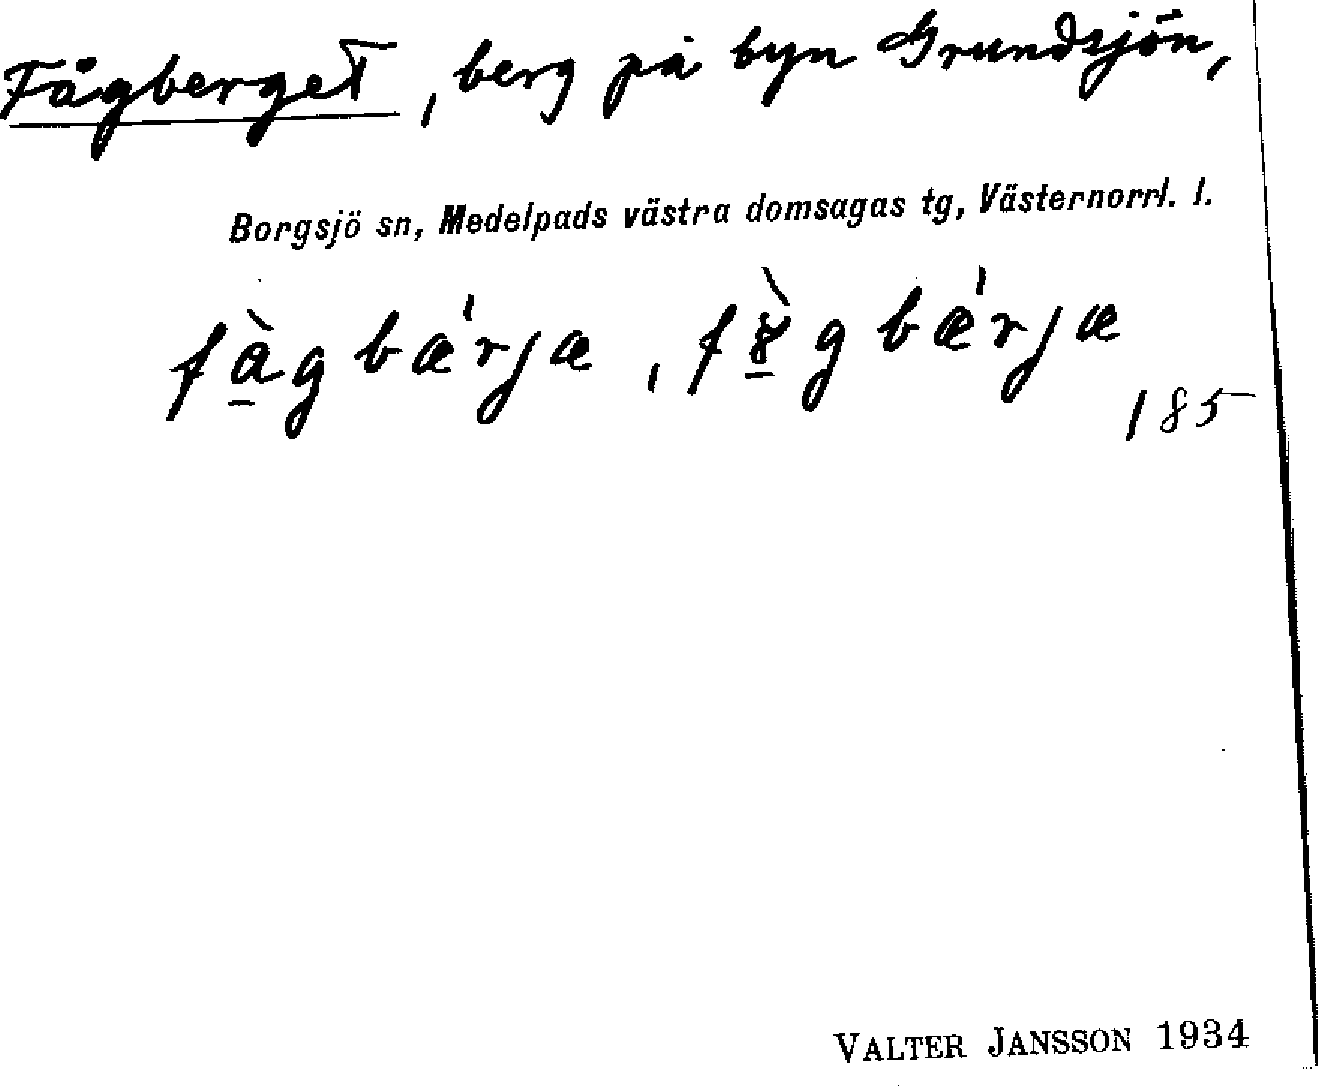 Fågberget, berg på byn Grundsjön,
Borgsjö sn, Medelpads västra domsagas tg, Västernorrl. l.
fàgbæ'rjæ, f8̀gbæ'rjæ
185
VALTER JANSSON 1934